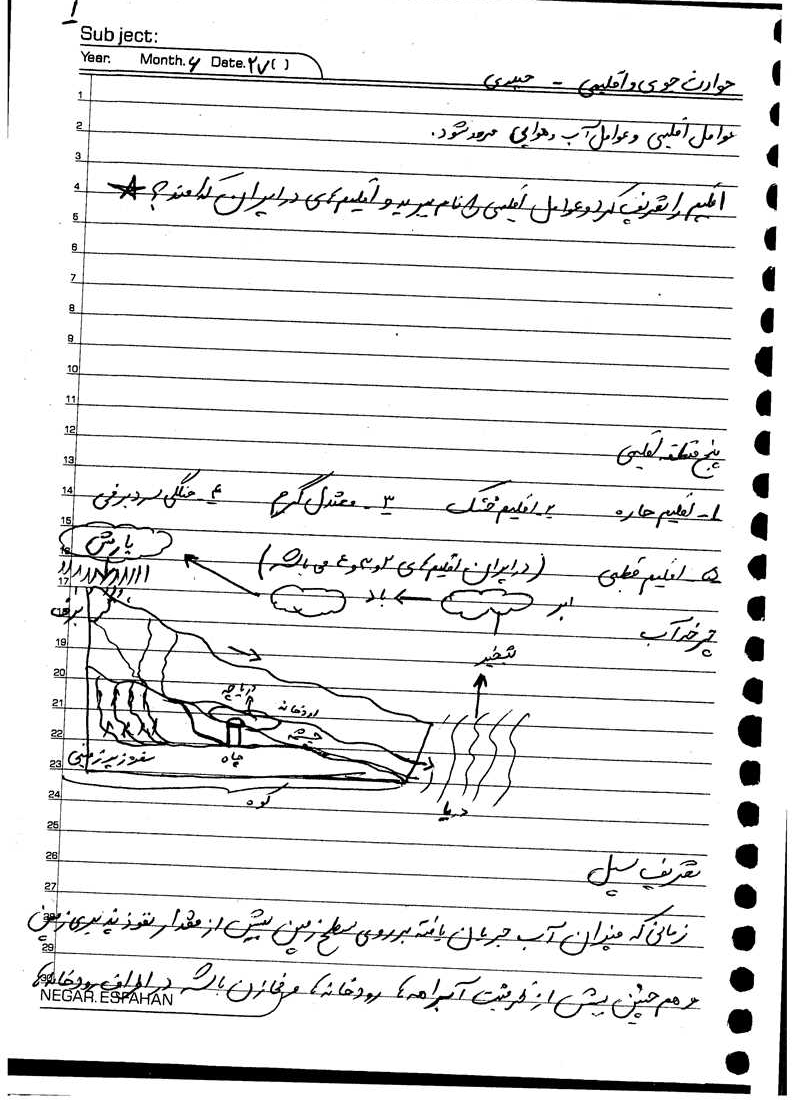 1
Subject:
Year. Month. ۶ Date. ۲۷( )
حوادث جوی و اقلیمی - حیدری
عوامل اقلیمی و عوامل آب و هوایی
اقلیم را تعریف کرده و عوامل اقلیمی را نام ببرید و اقلیم های در ایران کدامند؟
پنج منطقه اقلیمی
۱- اقلیم حاره ۲- اقلیم خشک ۳- معتدل گرم ۴- جنگلی سرد برفی
۵- اقلیم قطبی (در ایران اقلیم های ۲ و ۳ و ۴ می باشد)
بارش
ابر
باد
برف
چرخه آب
تبخیر
دریاچه
رودخانه
چشمه
چاه
سفره زیرزمینی
کوه
دریا
تعریف سیل
زمانی که میزان آب جریان یافته بر روی سطح زمین بیش از مقدار نفوذ پذیری زمین
و هم چنین بیش از ظرفیت آبراهه ها، رودخانه ها، و مخازن باشد در اطراف رودخانه ها
1
2
3
4
5
6
7
8
9
10
11
12
13
14
15
16
17
18
19
20
21
22
23
24
25
26
27
28
29
30
NEGAR.ESFAHAN